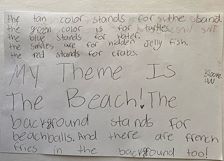 the tan color stands for the
the green color is for turtles
the blue stands for water.
the smiles are for hidden Jelly fish.
the red stands for crabs.
My Theme Is
The Beach! The
background stands for
beachballs. And there are french
fries in the background too!